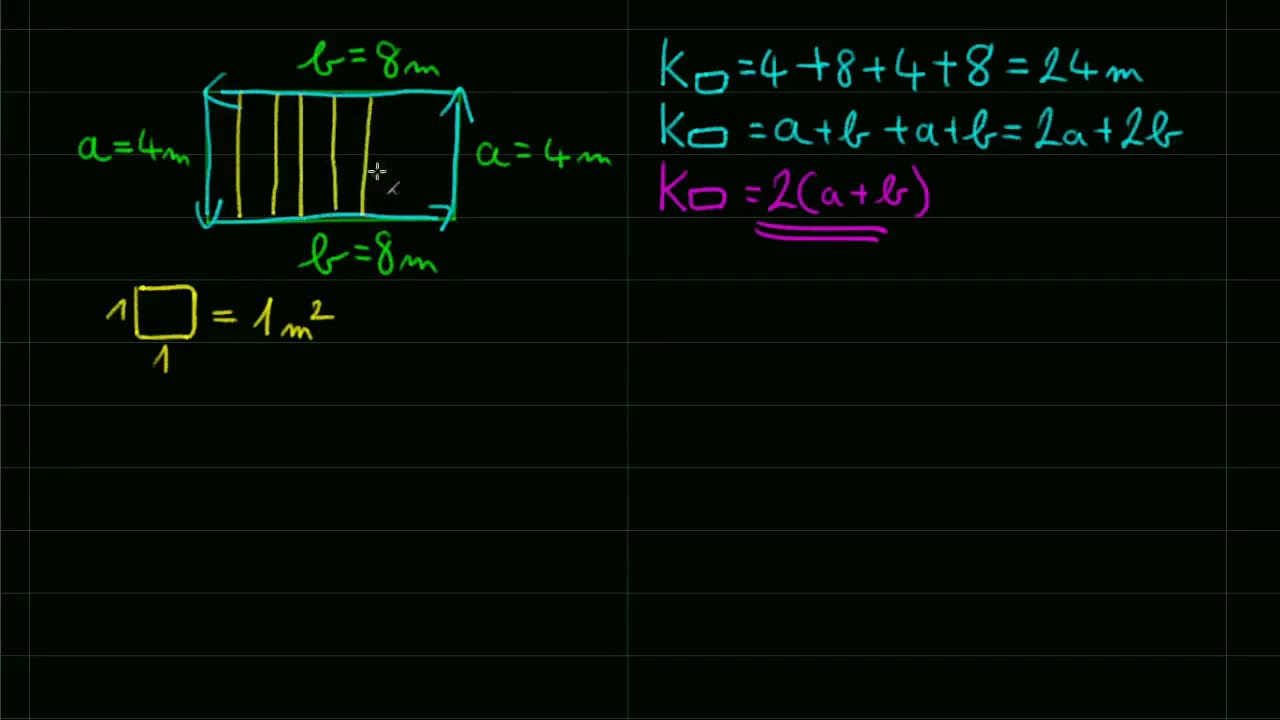 b = 8m
a = 4m
a = 4m
b = 8m
1 = 1m²
1
K▭ = 4 + 8 + 4 + 8 = 24m
K▭ = a + b + a + b = 2a + 2b
K▭ = 2(a + b)